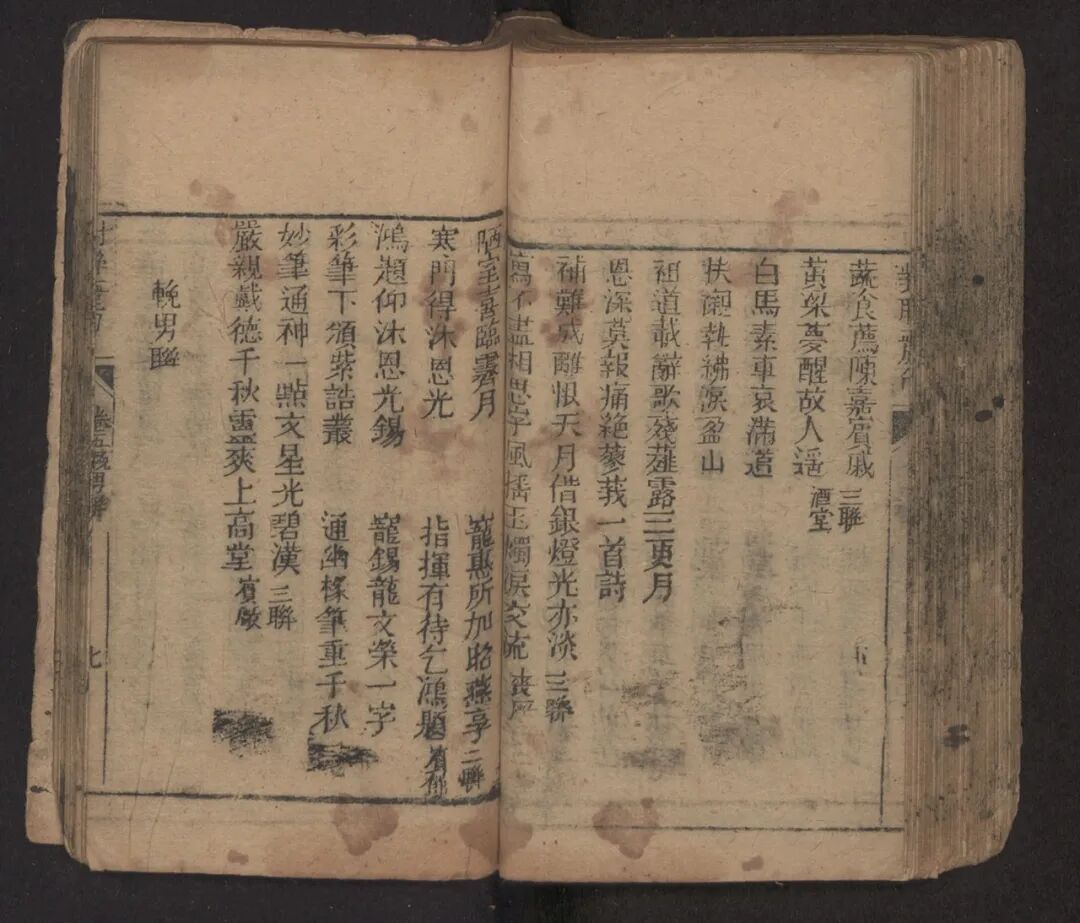 蔬食薦陳嘉賓戚 三聯
黃粱夢醒故人遥 酒堂
白馬素車哀滿道
扶櫬執紼淚盈山
祖道載辭歌殘薤露三更月
恩深莫報痛絶蓼莪一首詩
補難成離恨天月借銀燈光亦淡 三聯
寫不盡相思字風搖玉燭淚交流 喪屏
陋室喜臨霽月 寵惠所加昭燕享 二聯
寒門得沐恩光 指揮有待乞鴻題 賓館
鴻題仰沐恩光錫 寵錫龍文榮一字
彩筆下頒紫誥叢 通幽椽筆重千秋
妙筆通神一點文星光碧漢 三聯
嚴親戴德千秋靈爽上高堂 賓廠
輓男聯
卷五 輓男聯
七